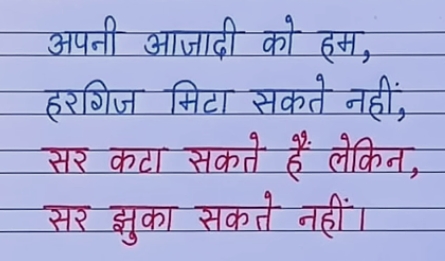 अपनी आजादी को हम,
हरगिज मिटा सकते नहीं,
सर कटा सकते हैं लेकिन,
सर झुका सकते नहीं।